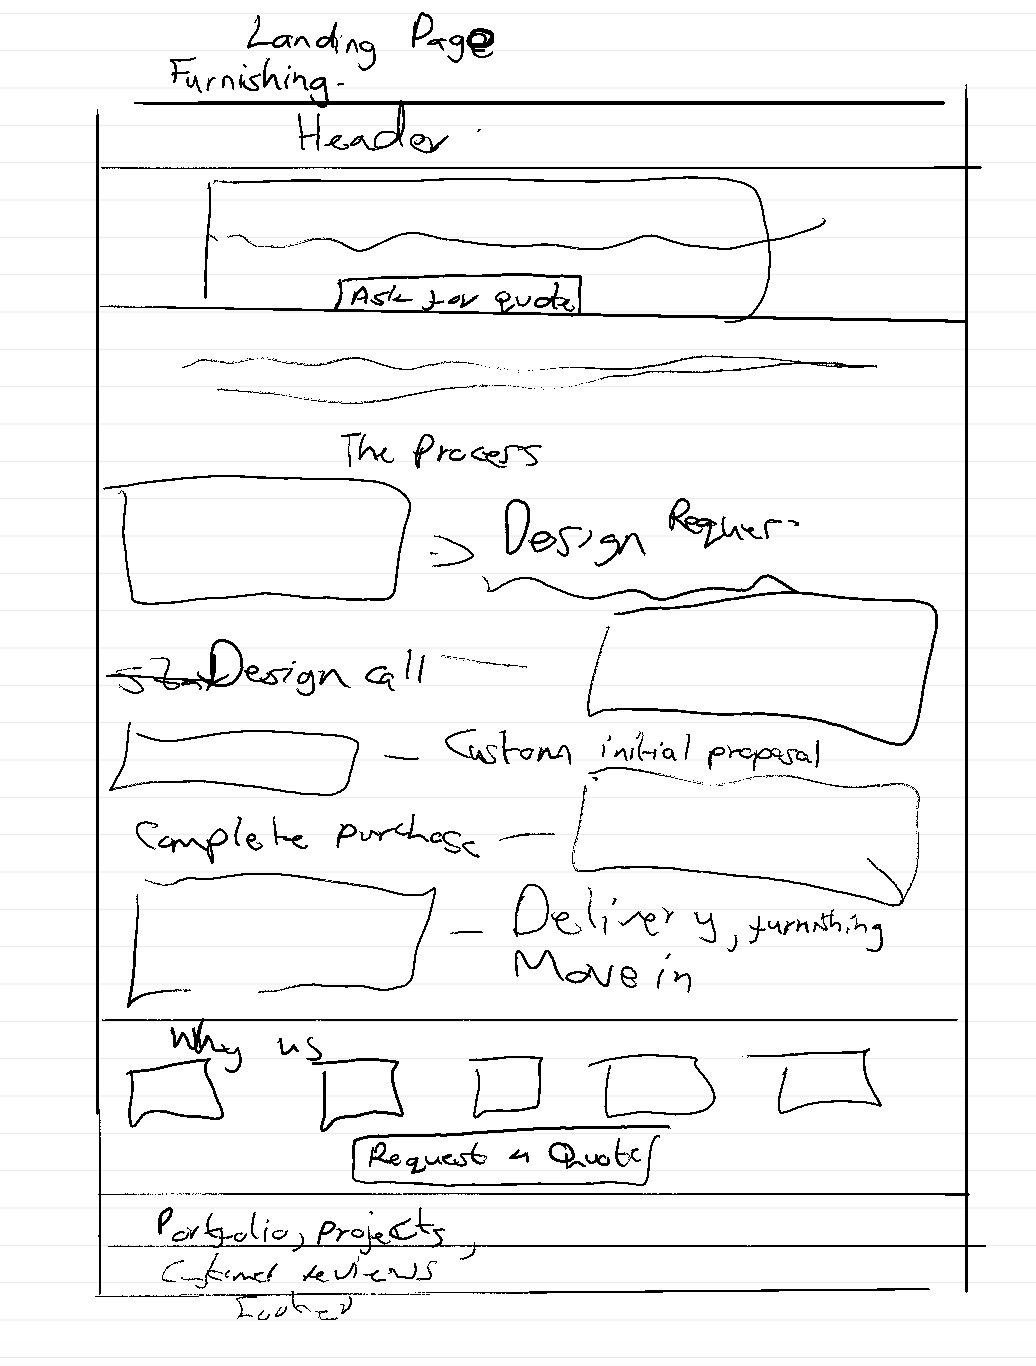 Landing Page
Furnishing.
Header
Ask for quote
The Process
Design Request
Design call
Custom initial proposal
Complete purchase
Delivery, furnishing
Move in
Why us
Request a Quote
Portfolio, projects,
Customer reviews
Footer